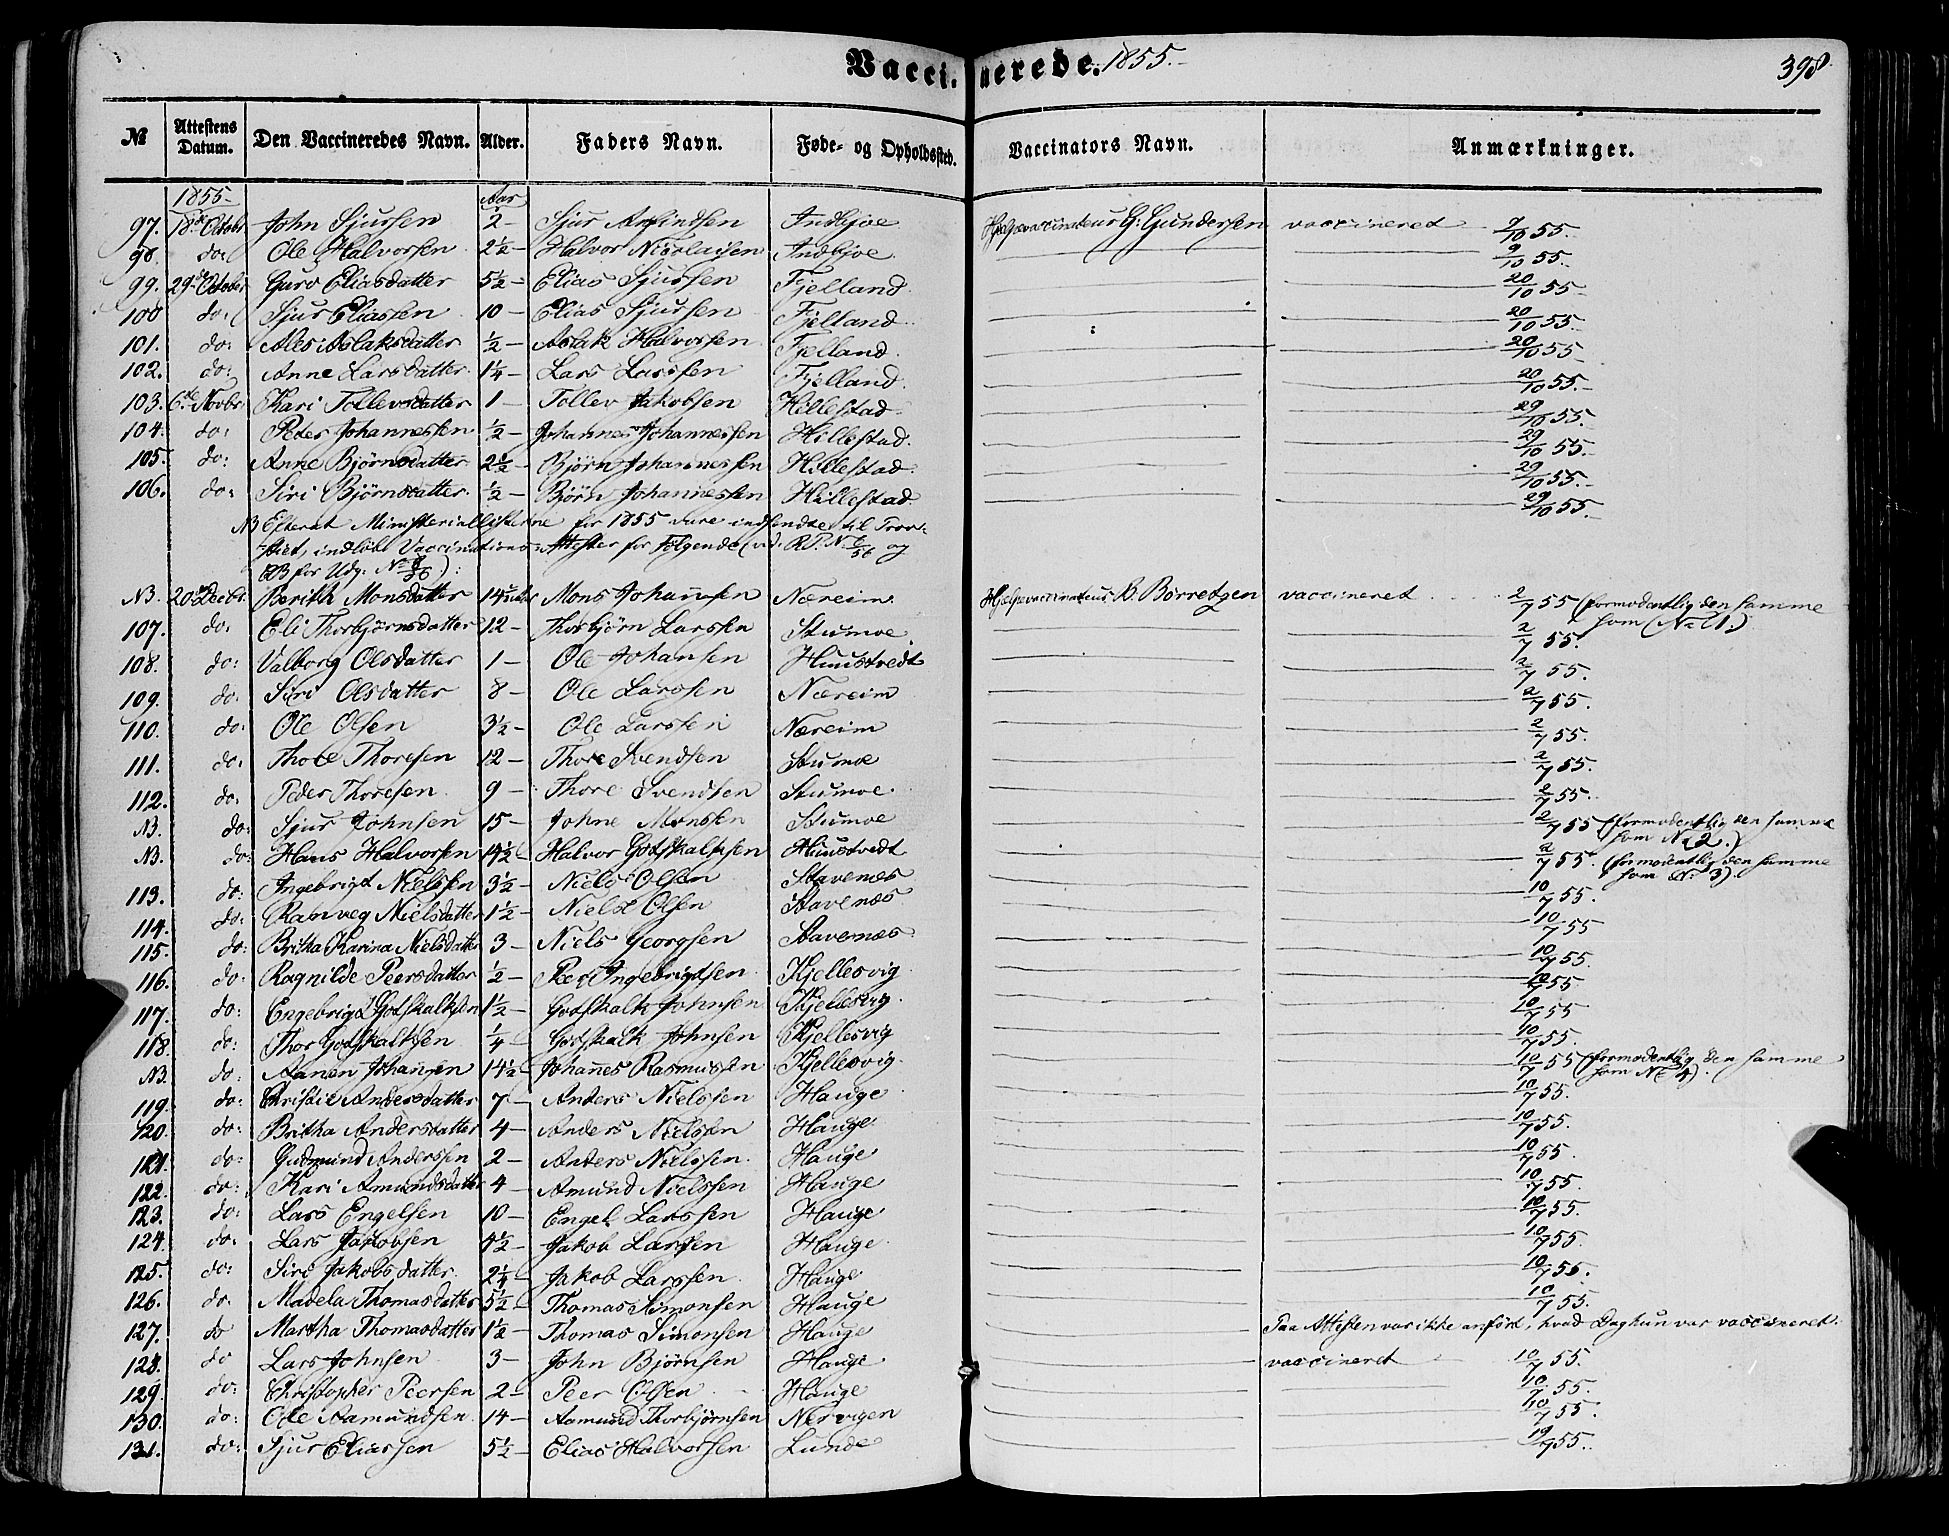 Vaccinerede. 1855.-
398
№ | Attestens Datum. | Den Vaccineredes Navn. | Alder. | Faders Navn. | Føde- og Opholdssted. | Vaccinators Navn. | Anmærkninger.
1855- | Aar
97. 18de Octobr John Sjursen 2- Sjur Indbjoe Hjelpevaccinateur G. Gundersen vaccineret 9/10 55.
98. do: Ole Halvorsen 2½- Halvor Nicolaisen Indbjoe 9/10 55.
99. 29de October Guro Eliasdatter 5½- Elias Sjursen Fjelland 20/10 55-
100 do: Sjur Eliassen 10- Elias Sjursen Fjelland 20/10 55.
101. do: Ales Aslaksdatter ½- Aslak Halvorsen Fjelland 20/10 55
102. do: Anne Larsdatter 1¼- Lars Larssen Fjelland. 20/10 55.-
103. 6te Novbr Kari Tollevsdatter 1- Tollev Jakobsen Hillestad 29/10 55.
104. do: Peder Johannessen ½- Johannes Johannessen Hillestad. 29/10 55.
105. do: Anne Bjørnsdatter 2½- Bjørn Johannessen Hillestad 29/10 55.-
106. do: Siri Bjørnsdatter. ½- Bjørn Johannessen Hillestad 29/10 55.-
NB Efterat Ministeriallisterne for 1855 vare indsendte til Prov-
stiet, indløb Vaccinations-Attester for Følgende (vid. R.P. No 6/56 og
CB for Udg. No 9/56):
NB. 20de Decbr. Berith Monsdatter 14 Mons Johansen Næreim Hjelpevaccinateur B. Børretzen vaccineret 2/7 55 (formodentlig den samme
som (No 1.)
107. do: Eli Thorbjørnsdatter 12- Thorbjørn Larssen Stumoe 2/7 55.
108. do: Valborg Olsdatter 1- Ole Johansen Huustvedt 2/7 55.
109. do: Siri Olsdatter 8- Ole Larssen Næreim 2/7 55.
110. do: Ole Olsen 3½- Ole Larssen Næreim 2/7 55.
111. do: Thore Thoresen 12- Thore Svendsen Stumoe 2/7 55.
112. do: Peder Thoresen 9- Thore Svendsen Stumoe 2/7 55.
NB. do: Sjur Johnsen 15- Johne Monssen Stumoe 2/7 55 (formodentlig den samme
som No 2.)
NB. do: Hans Halvorsen 14½- Halvor Godskalksen Huustvedt 2/7 55. (formodentlig den samme
som No 3).
113. do: Ingebrigt Nielssen 3½- Niels Olsen Stavenæs 10/7 55.
114. do: Ranveg Nielsdatter 1½- Niels Olsen Stavenæs 10/7 55
115. do: Britha Karina Nielsdatter 3- Niels Georgsen Stavenæs 10/7 55.
116. do: Ragnilde Peersdatter ½- Peer Ingebrigtsen Kjellesvig 10/7 55
117. do: Engebrigt Godskalksen 1½- Godskalk Johnsen Kjellesvig. 10/7 55
118. do: Thor Godskalksen ¼- Godskalk Johnsen Kjellesvig 10/7 55.
NB. do: Aanen Johansen 14½- Johanes Rasmussen Kjellesvig. 10/7 55 (formodentlig den samme
som No 4).
119. do: Christie Andersdatter 7- Anders Nielssen Hauge 10/7 55.
120. do: Britha Andersdatter 4- Anders Nielssen Hauge 10/7 55.
121. do: Gudmund Anderssen 2- Anders Nielssen. Hauge 10/7 55.
122. do: Kari Amundsdatter 4- Amund Nielssen Hauge 10/7 55.
123. do: Lars Engelsen 10- Engel Larssen Hauge 10/7 55.
124. do: Lars Jakobsen Jakob Larssen Hauge 10/7 55.
125. do: Siri Jakobsdatter. 2¼- Jakob Larssen Hauge 10/7 55.
126. do. Madela Thomasdatter 5½- Thomas Simonsen Hauge 10/7 55.
127. do Martha Thomasdatter 1½- Thomas Simonsen Hauge Paa Attesten var ikke anført, hvad Dag hun var vaccineret.
128. do Lars Johnsen 3- John Bjørnsen Hauge vaccineret 10/7 55.
129. do: Christopher Peersen 2- Peer Olsen Hauge 10/7 55.
130. do: Ole Aamundsen 14- Aamund Thorbjørnsen Nervigen 10/7 55.
131. do: Sjur Eliassen 5½- Elias Halvorsen Lunde 19/9 55.